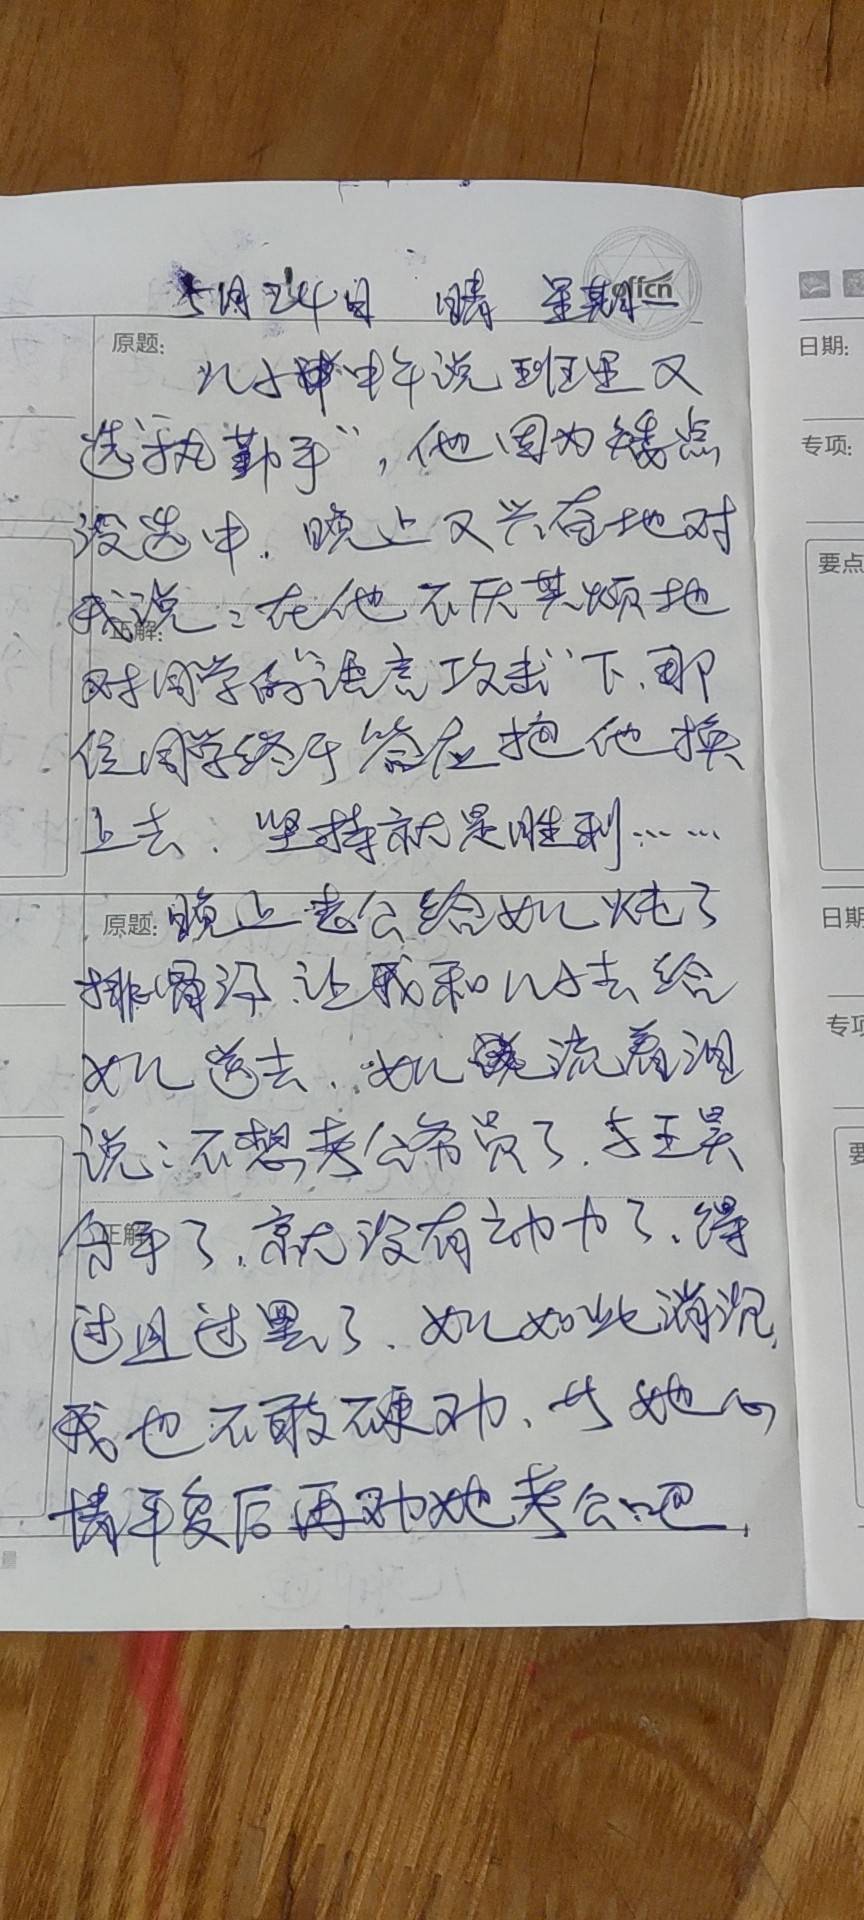 offcn
5月24日 晴 星期一
日期:
原题:
儿子中午说班里又
专项:
选"执勤手",他因为矮点
没选中.晚上又兴奋地对
要点
我说:在他不厌其烦地
正解:
对同学的"语言攻击"下,那
位同学终于答应把他换
上去.坚持就是胜利……
原题:
晚上老公给女儿炖了
日期
排骨汤.让我和儿子去给
专项
女儿送去.女儿流着泪
说:不想考公务员了.与王昊
要
分手了,就没有动力了.得
正解
过且过罢了.女儿如此消沉,
我也不敢硬劝、等她心
情平复后再劝她考公吧